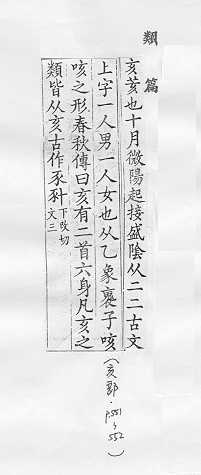 類篇
亥荄也十月微陽起接盛陰从二二古文
上字一人男一人女也从乙象褢子咳
咳之形春秋傳曰亥有二首六身凡亥之
類皆从亥古作𠀅𠀬下改切
文三
(亥部．P.551
~
552)